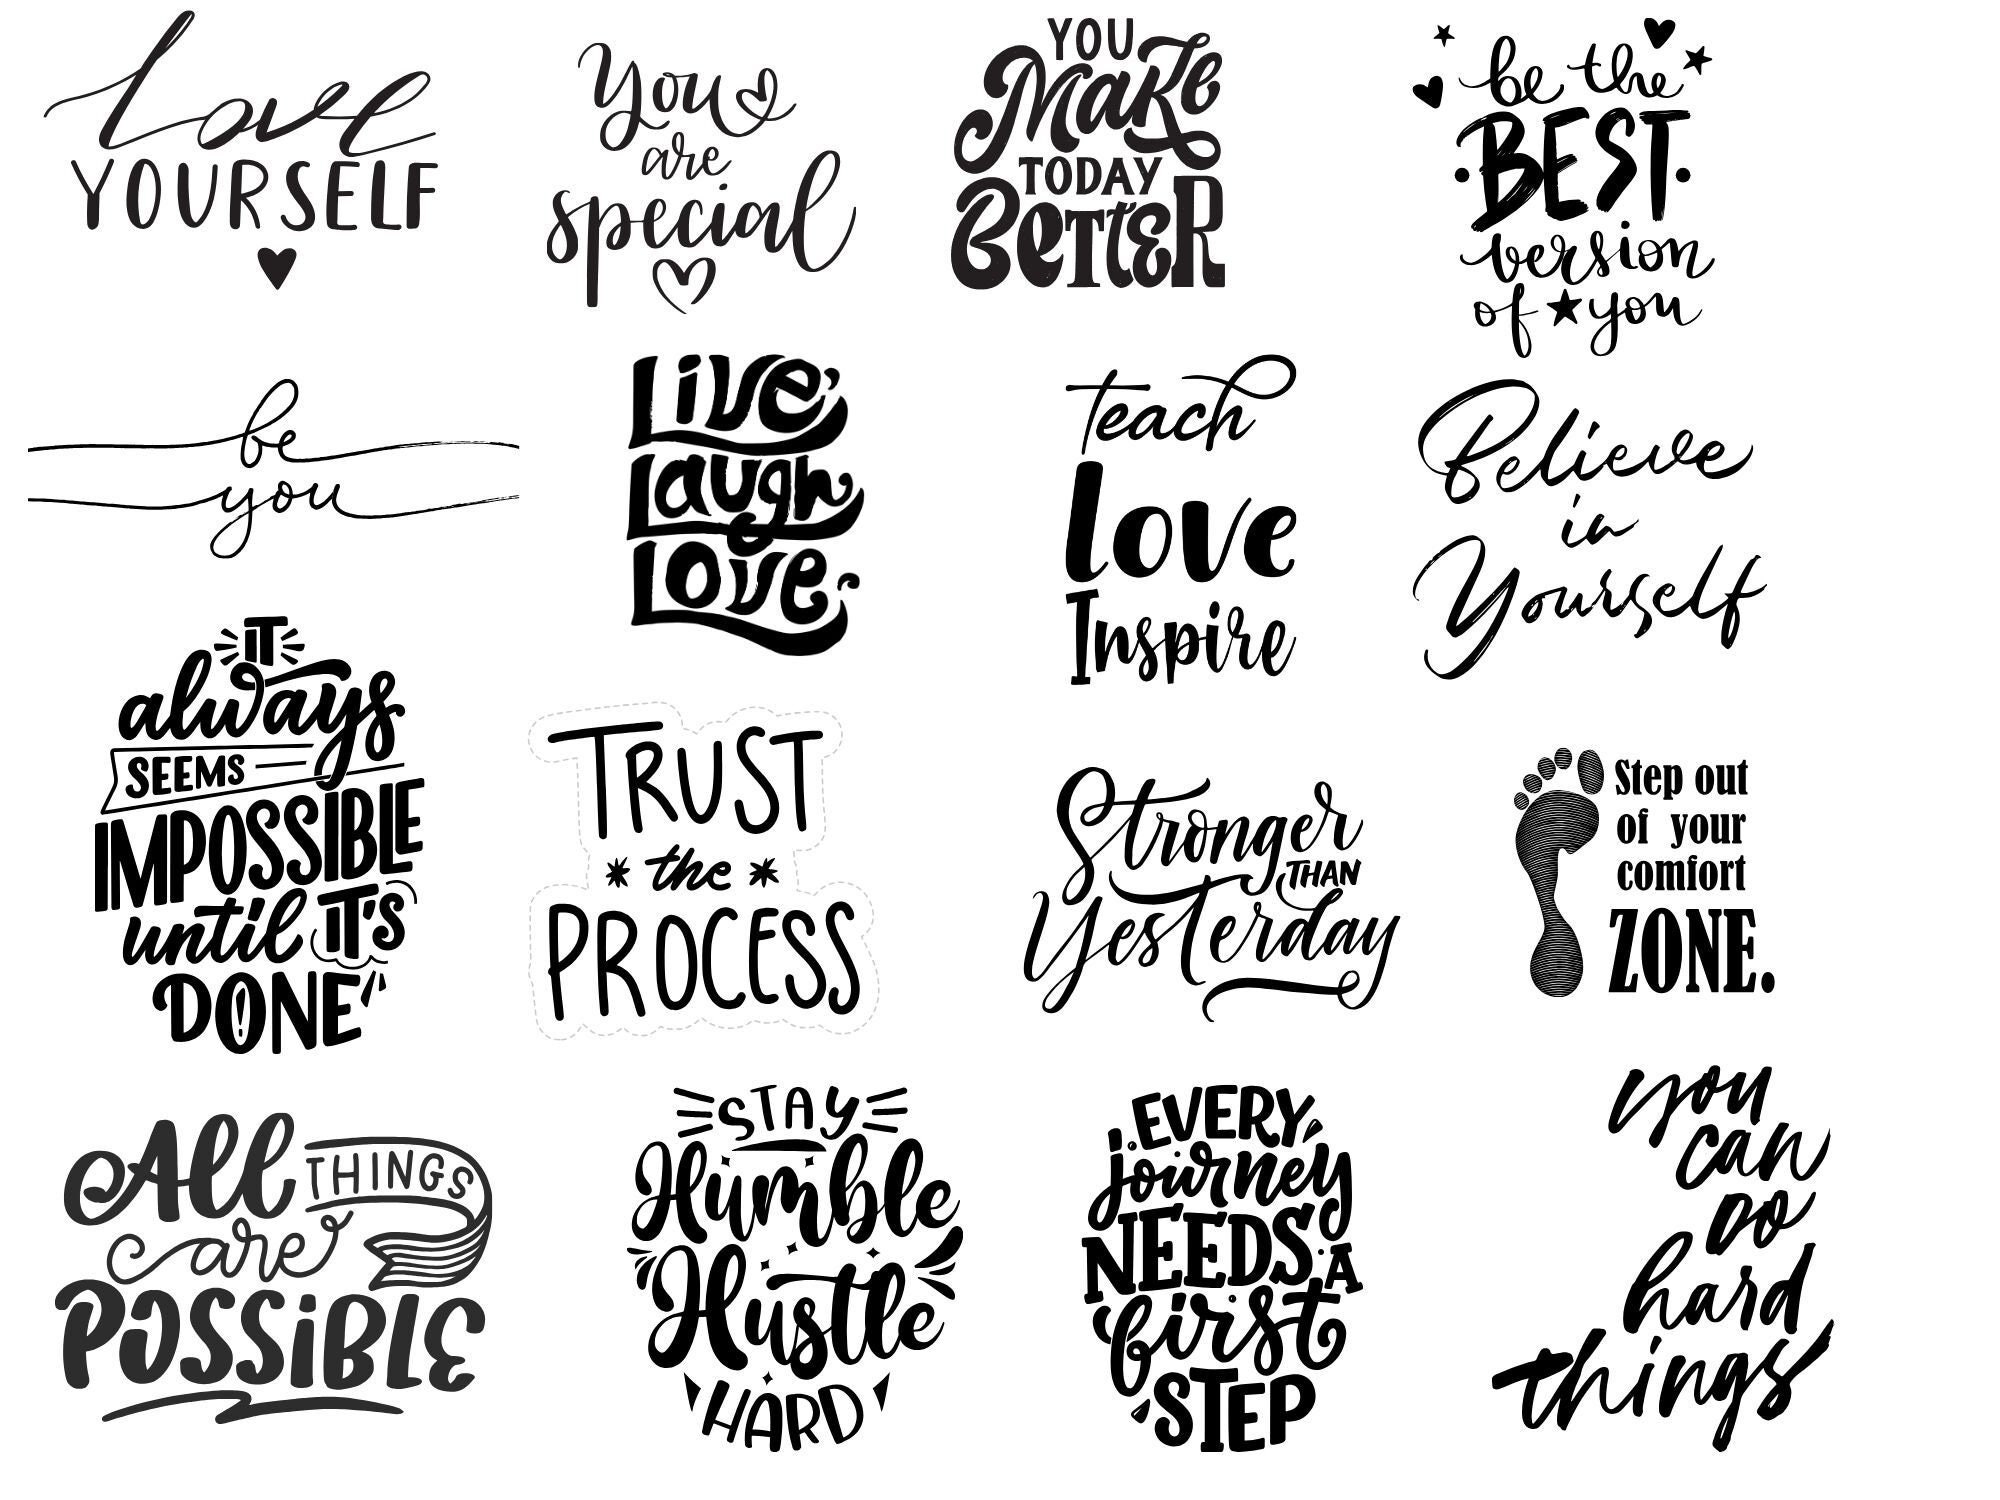 Love
YOURSELF
You
are
special
YOU
Make
TODAY
Better
be the
BEST
version
of you
be
you
Live
Laugh
Love
teach
Love
Inspire
Believe
in
Yourself
IT
always
SEEMS
IMPOSSIBLE
until IT'S
DONE
TRUST
the
PROCESS
Stronger
THAN
Yesterday
Step out
of your
comfort
ZONE.
All THINGS
are
POSSIBLE
STAY
Humble
Hustle
HARD
EVERY
journey
NEEDS A
first
STEP
you
can
do
hard
things